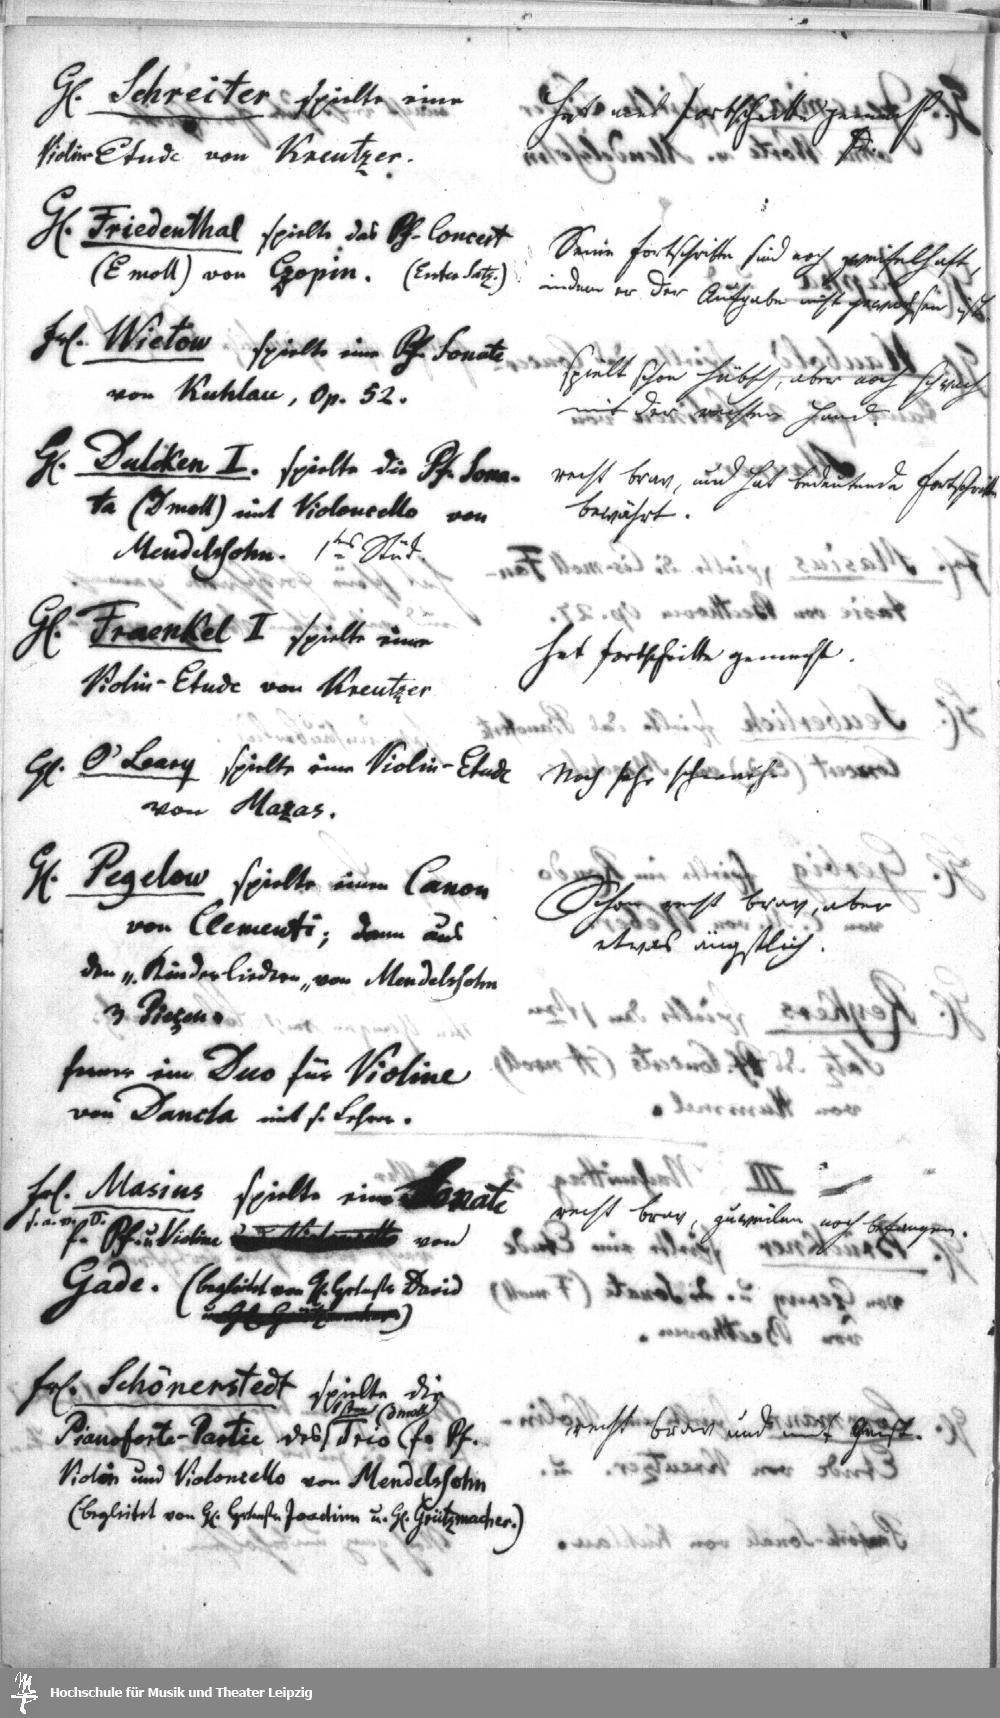 H. Schreiter spielte eine
Violin-Etude von Kreutzer.
Hat viel Fortschritte gemacht.
H. Friedenthal spielte das Pf-Concert
(E moll) von Czopin. (Erster Satz.)
Seine Fortschritte sind noch zweifelhaft,
indem er der Aufgabe nicht gewachsen ist.
Frl. Wietow spielte eine Pf. Sonate
von Kuhlau, Op. 52.
spielt schon hübsch, aber noch schwach
mit der rechten Hand.
H. Dulcken I. spielte die Pf. Sona-
ta (D moll) mit Violoncello von
Mendelssohn. 1tes Stück
recht brav, und hat bedeutende Fortschritte
bewährt.
H. Fraenkel II spielte eine
Violin-Etude von Kreutzer
Hat Fortschritte gemacht.
H. O'Leary spielte eine Violin-Etude
von Mazas.
Noch sehr schwach.
H. Pegelow spielte einen Canon
von Clementi; dann aus
den „Kinderliedern„ von Mendelssohn
3 Piezen.
Schon recht brav, aber
etwas ängstlich.
ferner ein Duo für Violine
von Dancla mit s. Lehrer.
Frl. Masius spielte eine Sonate
f. Pf. u. Violine von
Gade. (begleitet von H. David
recht brav, zuweilen noch befangen.
Frl. Schönerstedt spielte die
Pianoforte-Partie des Trio (D moll) (f. Pf.
Violin und Violoncello von Mendelssohn
(begleitet von H. Joachim u. H. Grützmacher.)
recht brav und mit Geist.
Hochschule für Musik und Theater Leipzig